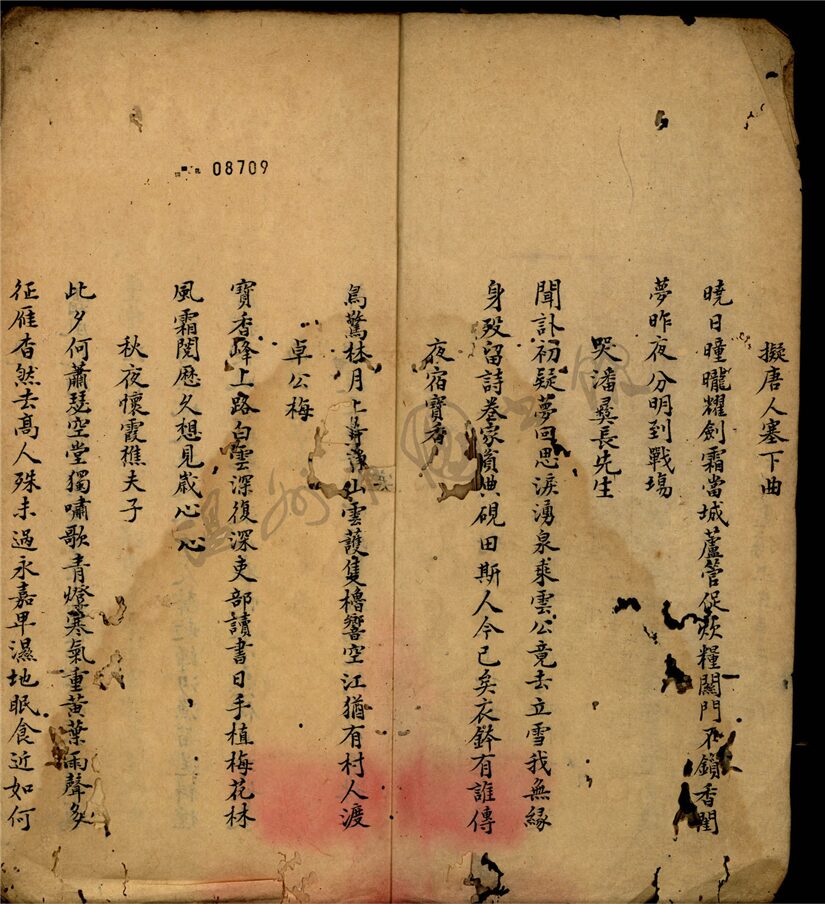 擬唐人塞下曲
曉日曈曨耀劍霜當城蘆管促炊糧關門不鎖香閨
夢昨夜分明到戰塲
哭潘彛長先生
聞訃初疑夢回思淚湧泉乘雲公竟去立雪我無緣
身歿留詩卷家貧典硯田斯人今已矣衣鉢有誰傳
夜宿寶香
鳥驚林月上山雲護隻櫓響空江猶有村人渡
卓公梅
寶香峰上路白雲深復深吏部讀書日手植梅花林
風霜閱歷久想見歲心心
秋夜懷霞樵夫子
此夕何蕭瑟空堂獨嘯歌青燈寒氣重黃葉雨聲多
征雁杳然去高人殊未過永嘉卑濕地眠食近如何
08709